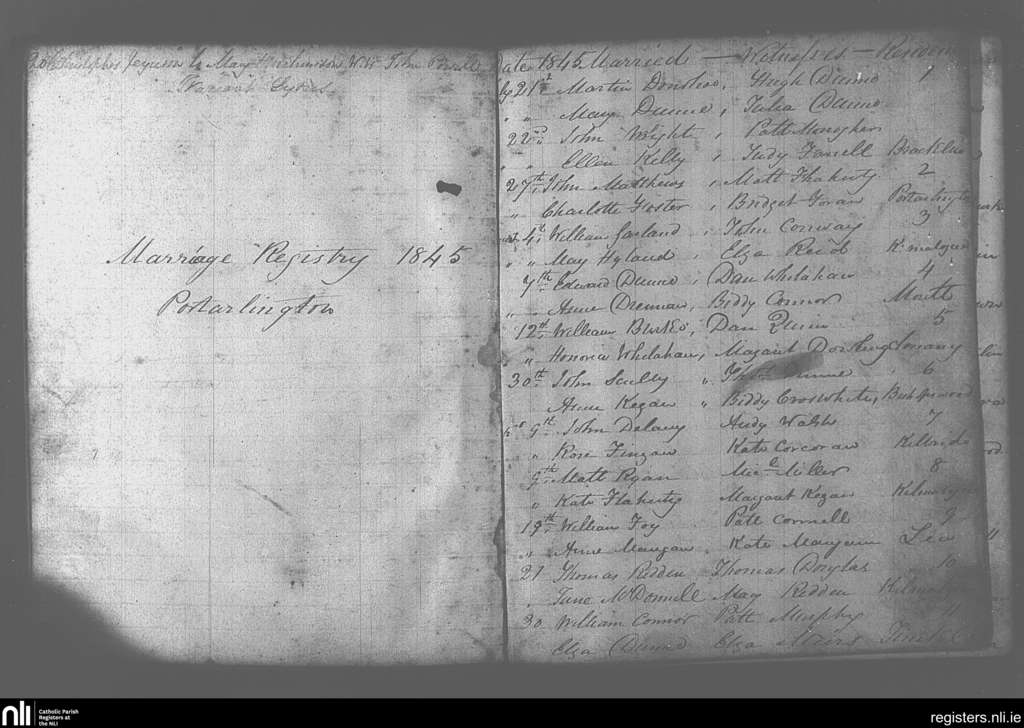 Christopher Ferguson to Mary Hutchinson W.W. John
Marriage Registry 1845
Portarlington
Date 1845 Married — Witnesses — Residence
21st Martin Donohoe, Hugh Dunne 1
" " Mary Dunne, Julia Dunne
22nd John Wright, Patt Monaghan
" Ellen Kelly, Judy Farrell Bracklin
27th John Matthews, Matt Flaherty 2
" Charlotte Foster, Bridget Foran Portarlington
4th William Garland, John Conway 3
" " May Hyland, Elza Reid Kilmalogue
7th Edward Dunne, Dan Whelahan 4
" Anne Drennan, Biddy Connor
12th William Burke, Dan Quinn 5
" Honoria Whelahan, Magaint
30th John Scully " Dunne 6
Anne Kegan " Biddy Croswhite,
9th John Delany Andy Walsh 7
" Rose Fingan Kate Corcoran
9th Matt Ryan Micl Miller 8
" Kate Flaherty Magaret Kegan
19th William Foy Patt Connell 9
" Anne Mangan, Kate Mangan Lea
21 Thomas Redden Thomas Douglas 10
" Jane McDonnell May Redden
30 William Connor Patt Murphy 11
Elza Dunne Elza
nli Catholic Parish
Registers at
the NLI
registers.nli.ie